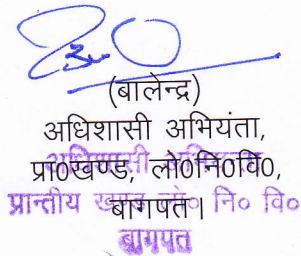 (बालेन्द्र)
अधिशासी अभियंता,
प्रा०खण्ड, लो०नि०वि०,
बागपत।
अधिशासी
प्रान्तीय खण्ड लो० नि० वि०
बागपत